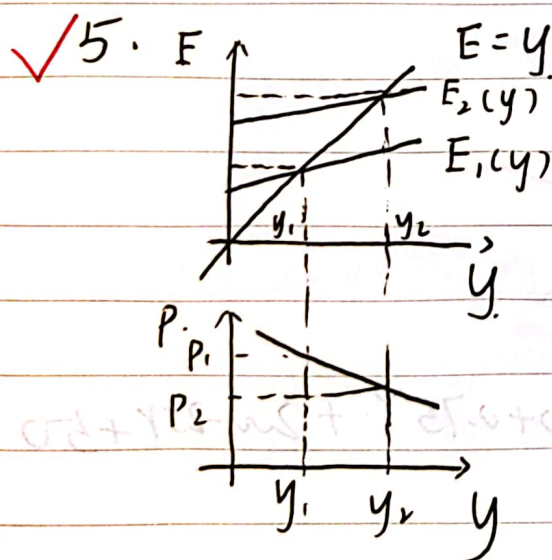 5. E
E = y
E₂(y)
E₁(y)
y₁ y₂
y.
P.
P₁
P₂
y₁ y₂ y